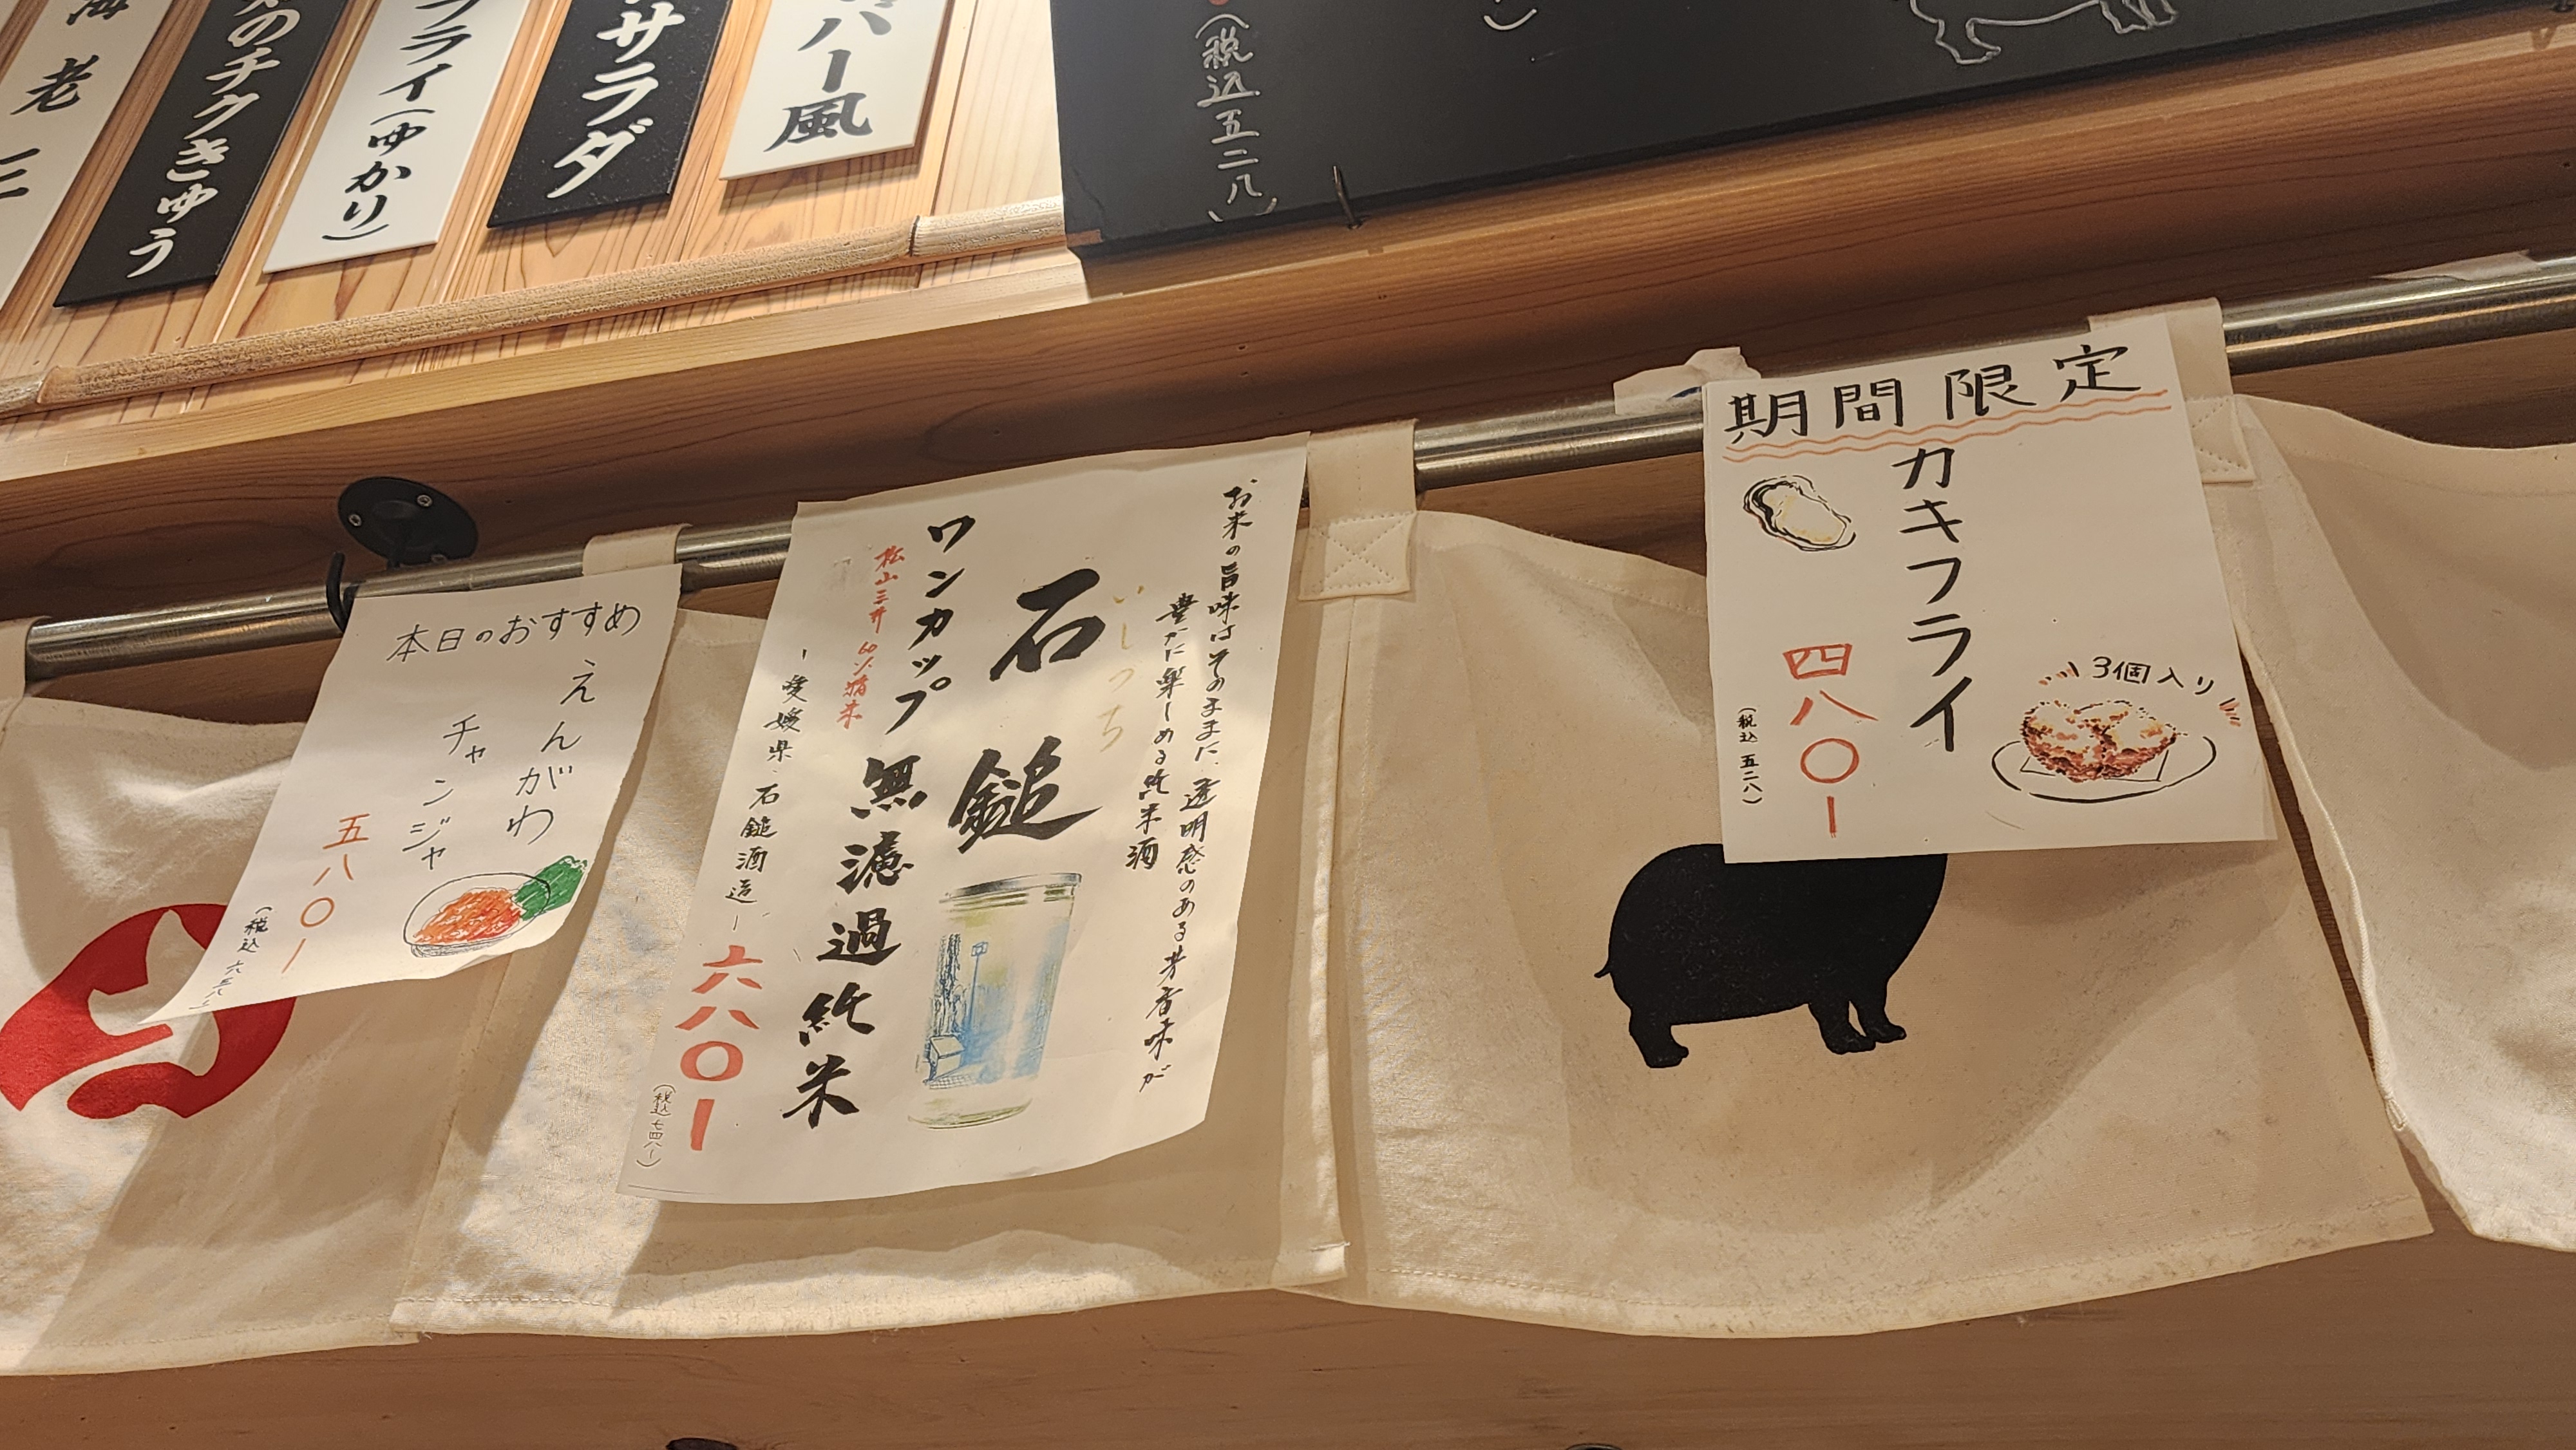 海老三
のチクきゅう
フライ(ゆかり)
サラダ
バー風
(税込五二八)
)
本日のおすすめ
えんがわ
チャンジャ
五八〇ー
(税込六三八ー
お米の旨味はそのままに、透明感のある芳香味が
豊かに楽しめる純米酒
いしづち
石鎚
ワンカップ無濾過純米
松山三井 60%精米
ー愛媛県・石鎚酒造ー
六八〇ー
(税込七四八ー)
期間限定
カキフライ
四八〇ー
(税込五二八)
3個入り